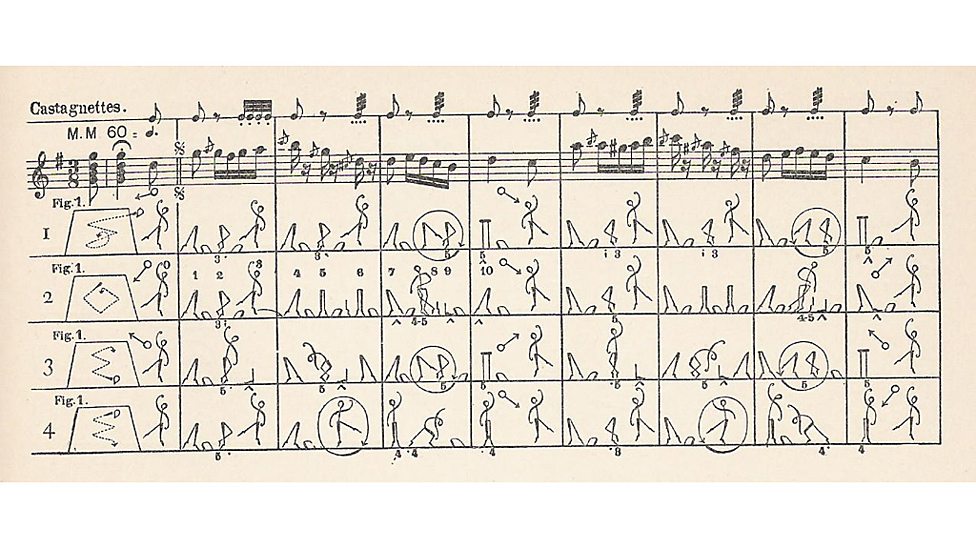 Castagnettes.
M.M 60 =
3 8
Fig.1.
1
3. 3. 5 5 i 3 i 3 5 5
Fig.1.
2
1 2 3 4 5 6 7 8 9 10
3i 4-5 ^ ^ 5 4-5 ^
Fig.1.
3
5 ^ 5 ^ 5 5 5 ^ 5 5 5
Fig.1.
4
5 4 4 4 8 4 4